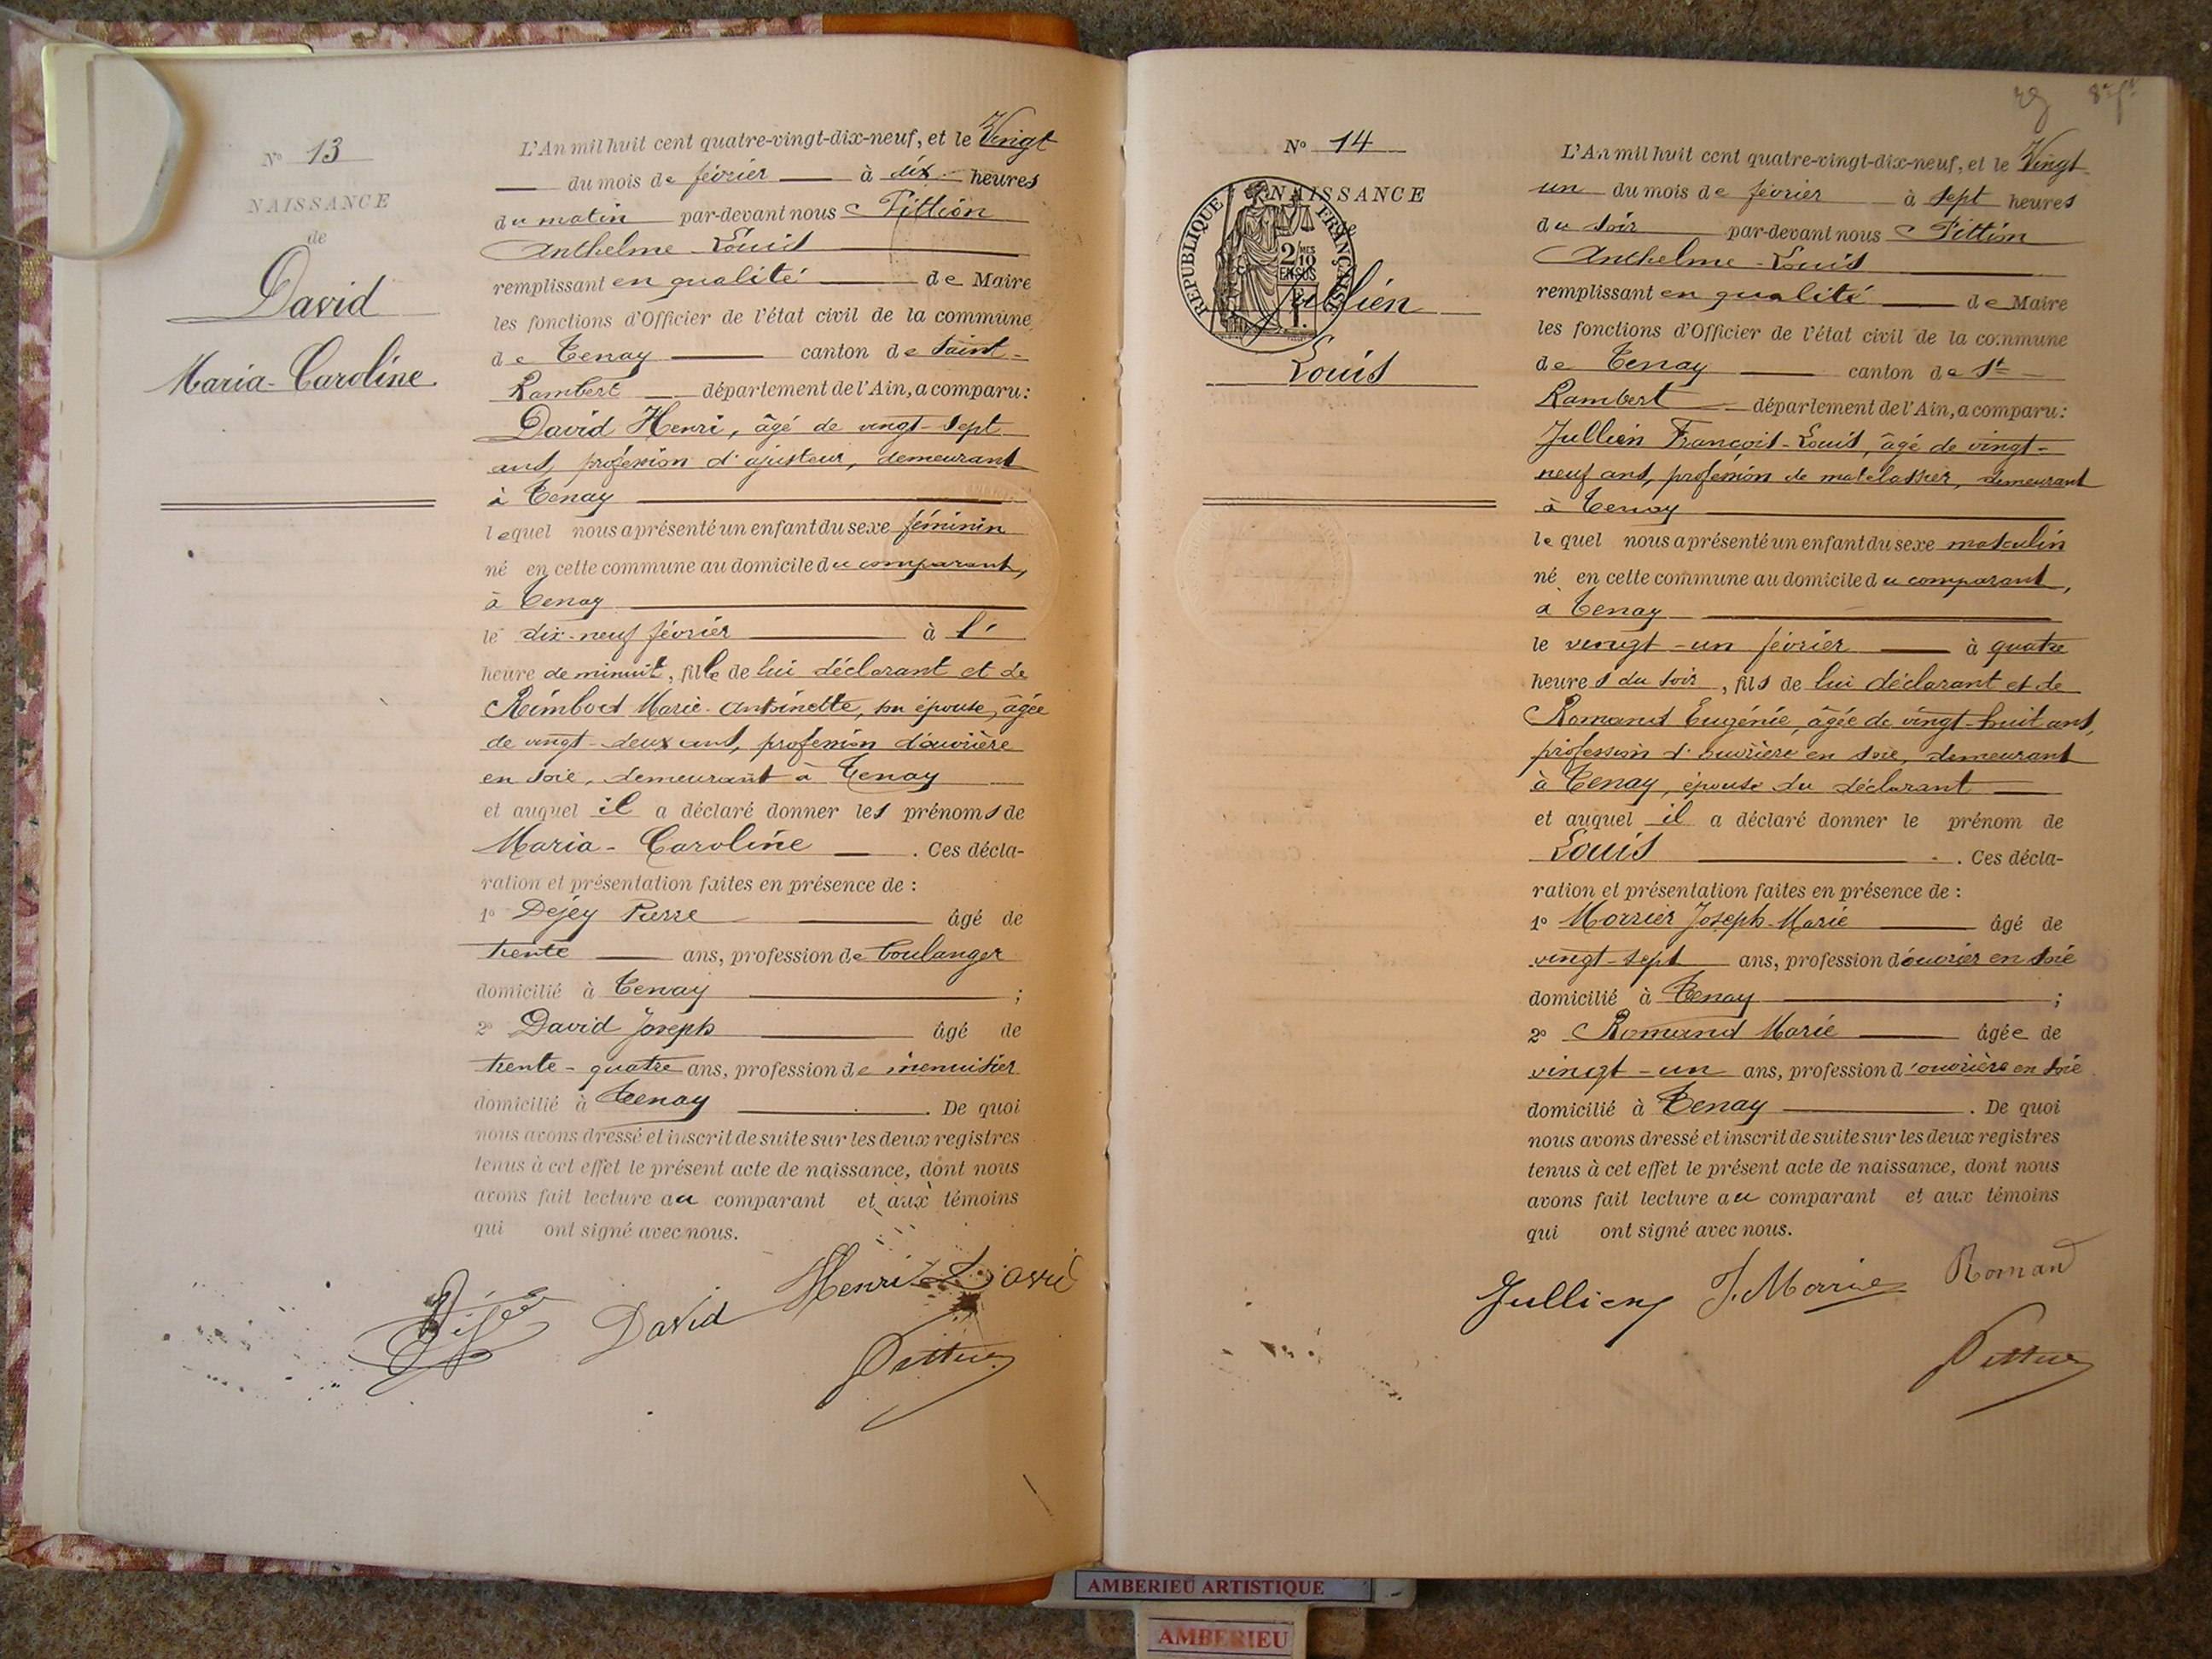 N° 13
NAISSANCE
de
David
Maria-Caroline.
L'An mil huit cent quatre-vingt-dix-neuf, et le Vingt
du mois de février à dix heures
du matin par-devant nous Pittion
Anthelme-Louis
remplissant en qualité de Maire
les fonctions d'Officier de l'état civil de la commune
de Tenay canton de Saint-
Rambert département de l'Ain, a comparu:
David Henri, âgé de vingt-sept
ans, profession d'ajusteur, demeurant
à Tenay
lequel nous a présenté un enfant du sexe féminin
né en cette commune au domicile du comparant,
à Tenay
le dix-neuf février à l'
heure de minuit, fille de lui déclarant et de
Marie-Antoinette, son épouse, âgée
de vingt-deux ans, profession d'ouvrière
en soie, demeurant à Tenay
et auquel il a déclaré donner les prénoms de
Maria-Caroline. Ces décla-
ration et présentation faites en présence de :
1° Dejey Pierre âgé de
trente ans, profession de boulanger
domicilié à Tenay ;
2° David Joseph âgé de
trente-quatre ans, profession de menuisier
domicilié à Tenay. De quoi
nous avons dressé et inscrit de suite sur les deux registres
tenus à cet effet le présent acte de naissance, dont nous
avons fait lecture au comparant et aux témoins
qui ont signé avec nous.
David Henri David
Pittion
N° 14
NAISSANCE
de
REPUBLIQUE FRANÇAISE
2/10 MES
EN SUS
Jullien
Louis
L'An mil huit cent quatre-vingt-dix-neuf, et le Vingt
un du mois de février à sept heures
du soir par-devant nous Pittion
Anthelme-Louis
remplissant en qualité de Maire
les fonctions d'Officier de l'état civil de la commune
de Tenay canton de St
Rambert département de l'Ain, a comparu:
Jullien François-Louis, âgé de vingt-
neuf ans, profession de matelassier, demeurant
à Tenay
lequel nous a présenté un enfant du sexe masculin
né en cette commune au domicile du comparant,
à Tenay
le vingt-un février à quatre
heures du soir, fils de lui déclarant et de
Romand Eugénie, âgée de vingt-huit ans,
profession d'ouvrière en soie, demeurant
à Tenay, épouse du déclarant
et auquel il a déclaré donner le prénom de
Louis. Ces décla-
ration et présentation faites en présence de :
1° Morrier Joseph-Marie âgé de
vingt-sept ans, profession d'ouvrier en soie
domicilié à Tenay ;
2° Romand Marie âgée de
vingt-un ans, profession d'ouvrière en soie
domicilié à Tenay. De quoi
nous avons dressé et inscrit de suite sur les deux registres
tenus à cet effet le présent acte de naissance, dont nous
avons fait lecture au comparant et aux témoins
qui ont signé avec nous.
Jullien J. Morrier Romand
Pittion
AMBERIEU ARTISTIQUE
AMBERIEU